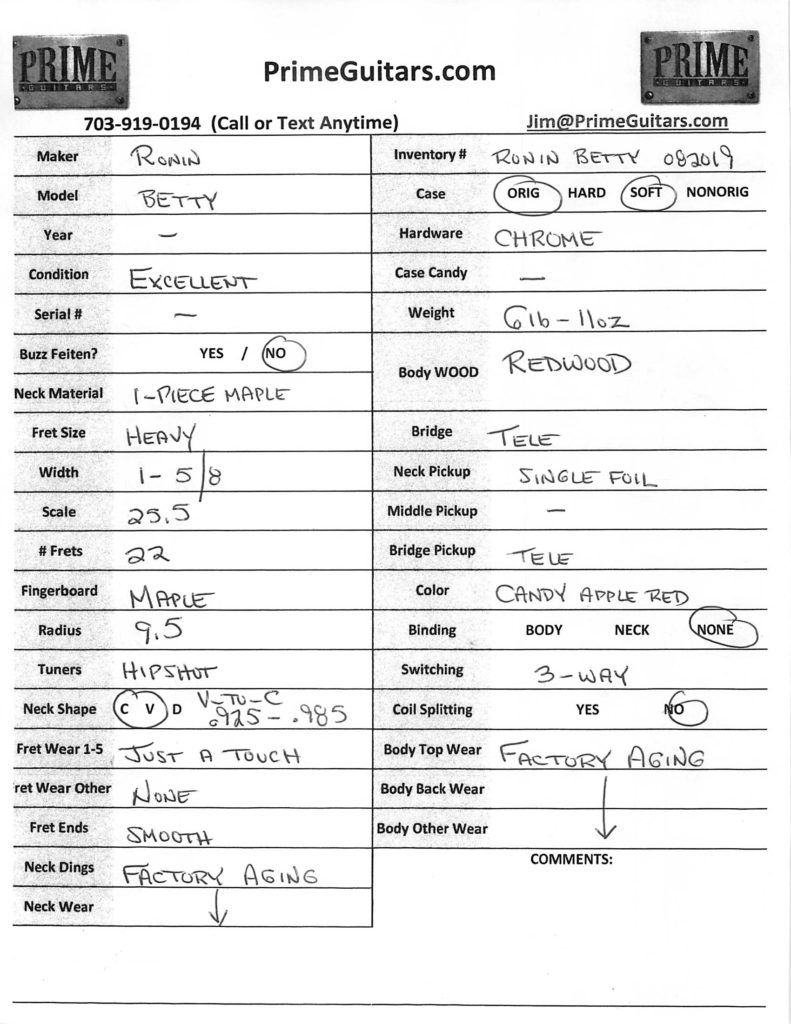 PRIME
GUITARS
PrimeGuitars.com
PRIME
GUITARS
703-919-0194 (Call or Text Anytime)
Jim@PrimeGuitars.com
Maker RONIN
Model BETTY
Year —
Condition EXCELLENT
Serial # —
Buzz Feiten? YES / NO
Neck Material 1-PIECE MAPLE
Fret Size HEAVY
Width 1-5/8
Scale 25.5
# Frets 22
Fingerboard MAPLE
Radius 9.5
Tuners HIPSHOT
Neck Shape C V D V-TO-C
.925-.985
Fret Wear 1-5 JUST A TOUCH
ret Wear Other NONE
Fret Ends SMOOTH
Neck Dings FACTORY AGING
Neck Wear
Inventory # RONIN BETTY 082019
Case ORIG HARD SOFT NONORIG
Hardware CHROME
Case Candy —
Weight 6lb-11oz
Body WOOD REDWOOD
Bridge TELE
Neck Pickup SINGLE FOIL
Middle Pickup —
Bridge Pickup TELE
Color CANDY APPLE RED
Binding BODY NECK NONE
Switching 3-WAY
Coil Splitting YES NO
Body Top Wear FACTORY AGING
Body Back Wear
Body Other Wear
COMMENTS: